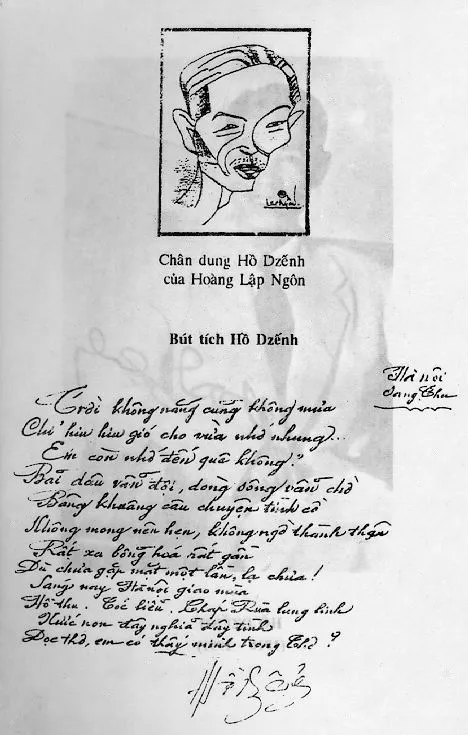 Chân dung Hồ Dzếnh
của Hoàng Lập Ngôn
Bút tích Hồ Dzếnh
Hà nội
Sang Thu
Trời không nắng cũng không mưa
Chỉ hiu hiu gió cho vừa nhớ nhung...
Em còn nhớ đến quê không?
Bãi dâu vẫn đợi, dòng sông vẫn chờ
Bâng khuâng câu chuyện tình cờ
Không mong nên hẹn, không ngờ thành thân
Rất xa bỗng hoá rất gần
Dù chưa gặp mặt một lần, lạ chưa!
Sang nay Hà nội giao mùa
Hồ thu. Tóc liễu. Tháp Rùa lung linh
Nước non đầy nghĩa đầy tình
Đọc thơ, em có thấy mình trong Thơ?
Hồ Dzếnh